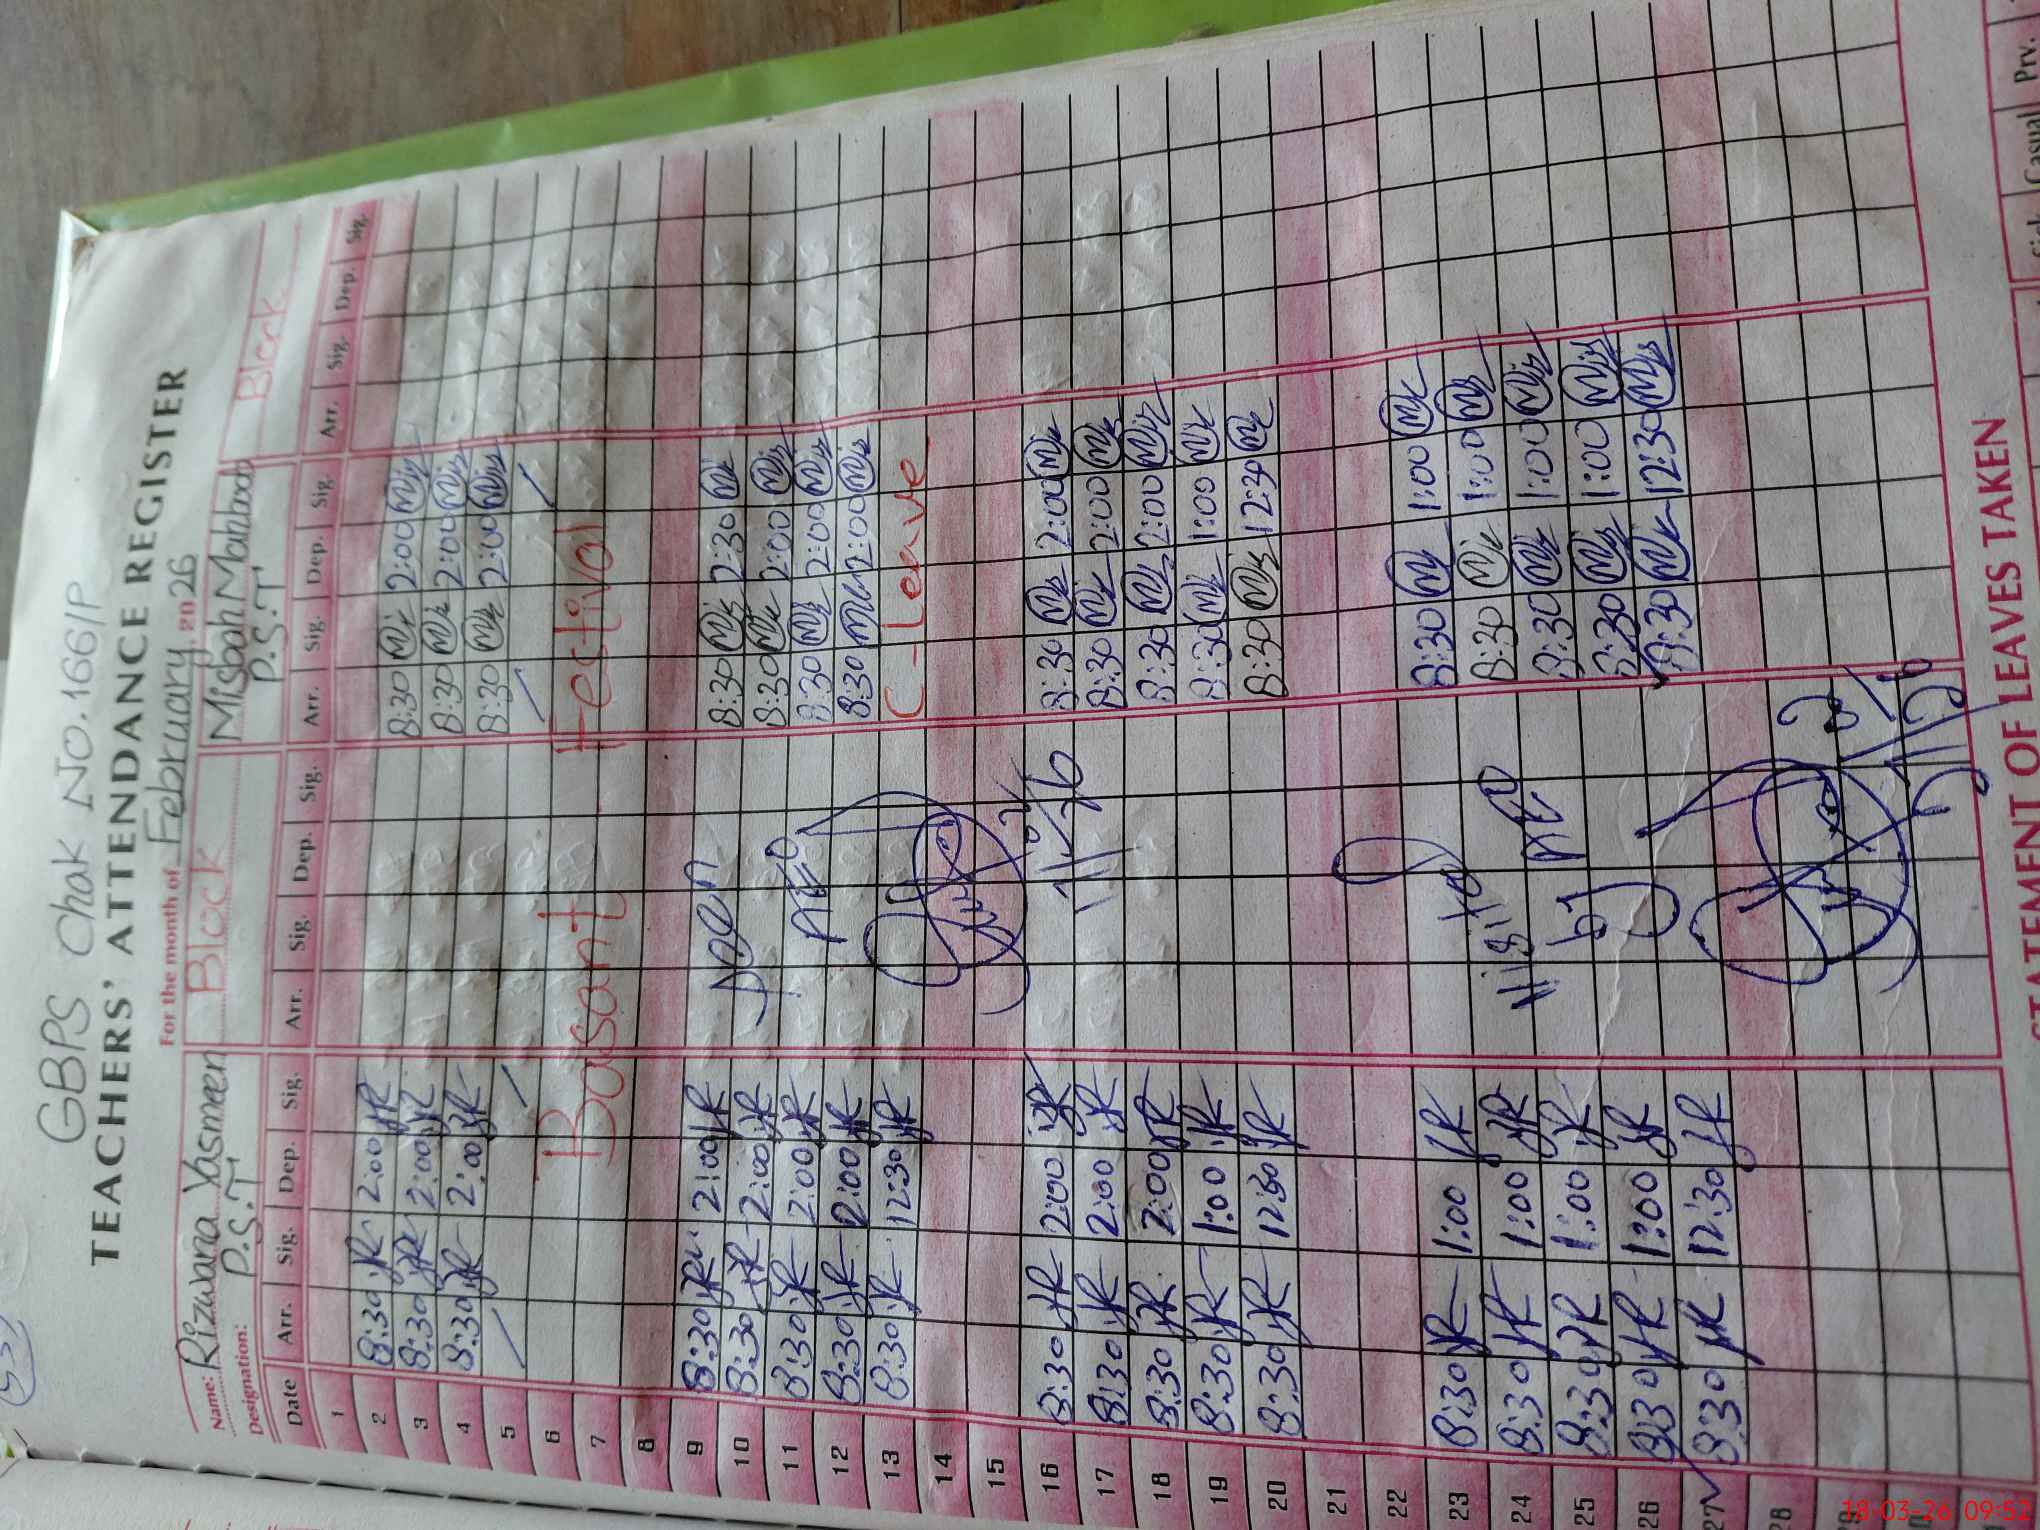 GBPS Chak No. 166/P
TEACHERS' ATTENDANCE REGISTER
For the month of February, 2026
Name: Rizwana Yasmeen Block Misbah Mahboob Block
Designation: P.S.T P.S.T
Date Arr. Sig. Dep. Sig. Arr. Sig. Dep. Sig. Arr. Sig. Dep. Sig. Arr. Sig. Dep. Sig.
1
2 8:30 2:00 8:30 2:00
3 8:30 2:00 8:30 2:00
4 8:30 2:00 8:30 2:00
5
6 Basant Festival
7
8
9 8:30 2:00 Seen 8:30 2:30
10 8:30 2:00 8:30 2:00
11 8:30 2:00 AEO 8:30 2:00
12 8:30 2:00 8:30 2:00
13 8:30 12:30 C-Leave
14
15
16 8:30 2:00 11/02/26 8:30 2:00
17 8:30 2:00 8:30 2:00
18 8:30 2:00 8:30 2:00
19 8:30 1:00 8:30 1:00
20 8:30 12:30 8:30 12:30
21
22
23 8:30 1:00 8:30 1:00
24 8:30 1:00 Visited 8:30 1:00
25 8:30 1:00 by AEO 8:30 1:00
26 8:30 1:00 8:30 1:00
27 8:30 12:30 8:30 12:30
28
STATEMENT OF LEAVES TAKEN
Casual Prv.
18-03-26 09:52